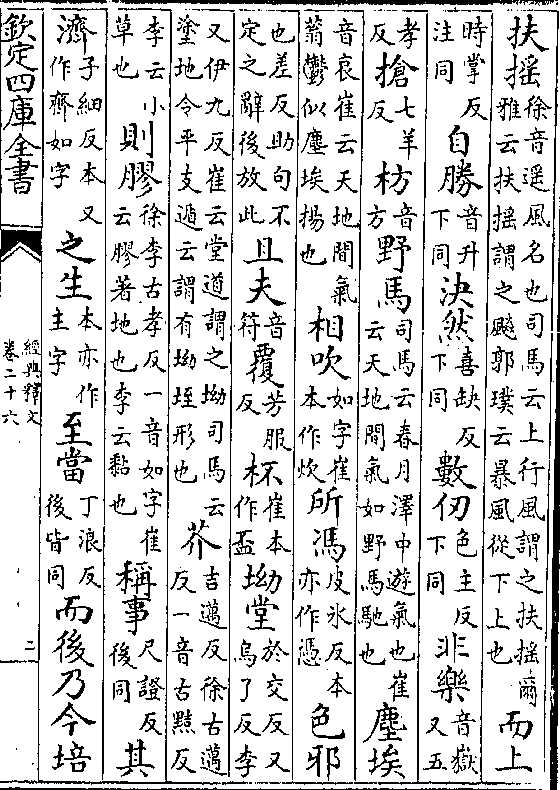 扶搖徐音遥風名也司馬云上行風謂之扶搖爾雅云扶搖謂之飇郭璞云暴風從下上也而上
時掌反注同自勝音升下同決然喜缺反下同數仞色主反下同非樂音嶽又五
孝反搶七羊反枋音方野馬司馬云春月澤中遊氣也崔云天地間氣如野馬馳也塵埃
音哀崔云天地間氣蓊鬱似塵埃揚也相吹如字崔本作炊所馮皮氷反本亦作憑色邪
也差反助句不定之辭後放此且夫音符覆芳服反杯崔本作盃坳堂於交反又烏了反李
又伊九反崔云堂道謂之坳司馬云塗地令平支遁云謂有坳垤形也芥吉邁反徐古邁反一音古黠反
李云小草也則膠徐李古孝反一音如字崔云膠著地也李云黏也稱事尺證反後同其
濟子細反本又作齊如字之生本亦作主字至當丁浪反後皆同而後乃今培
欽定四庫全書
經典釋文
卷二十六
二